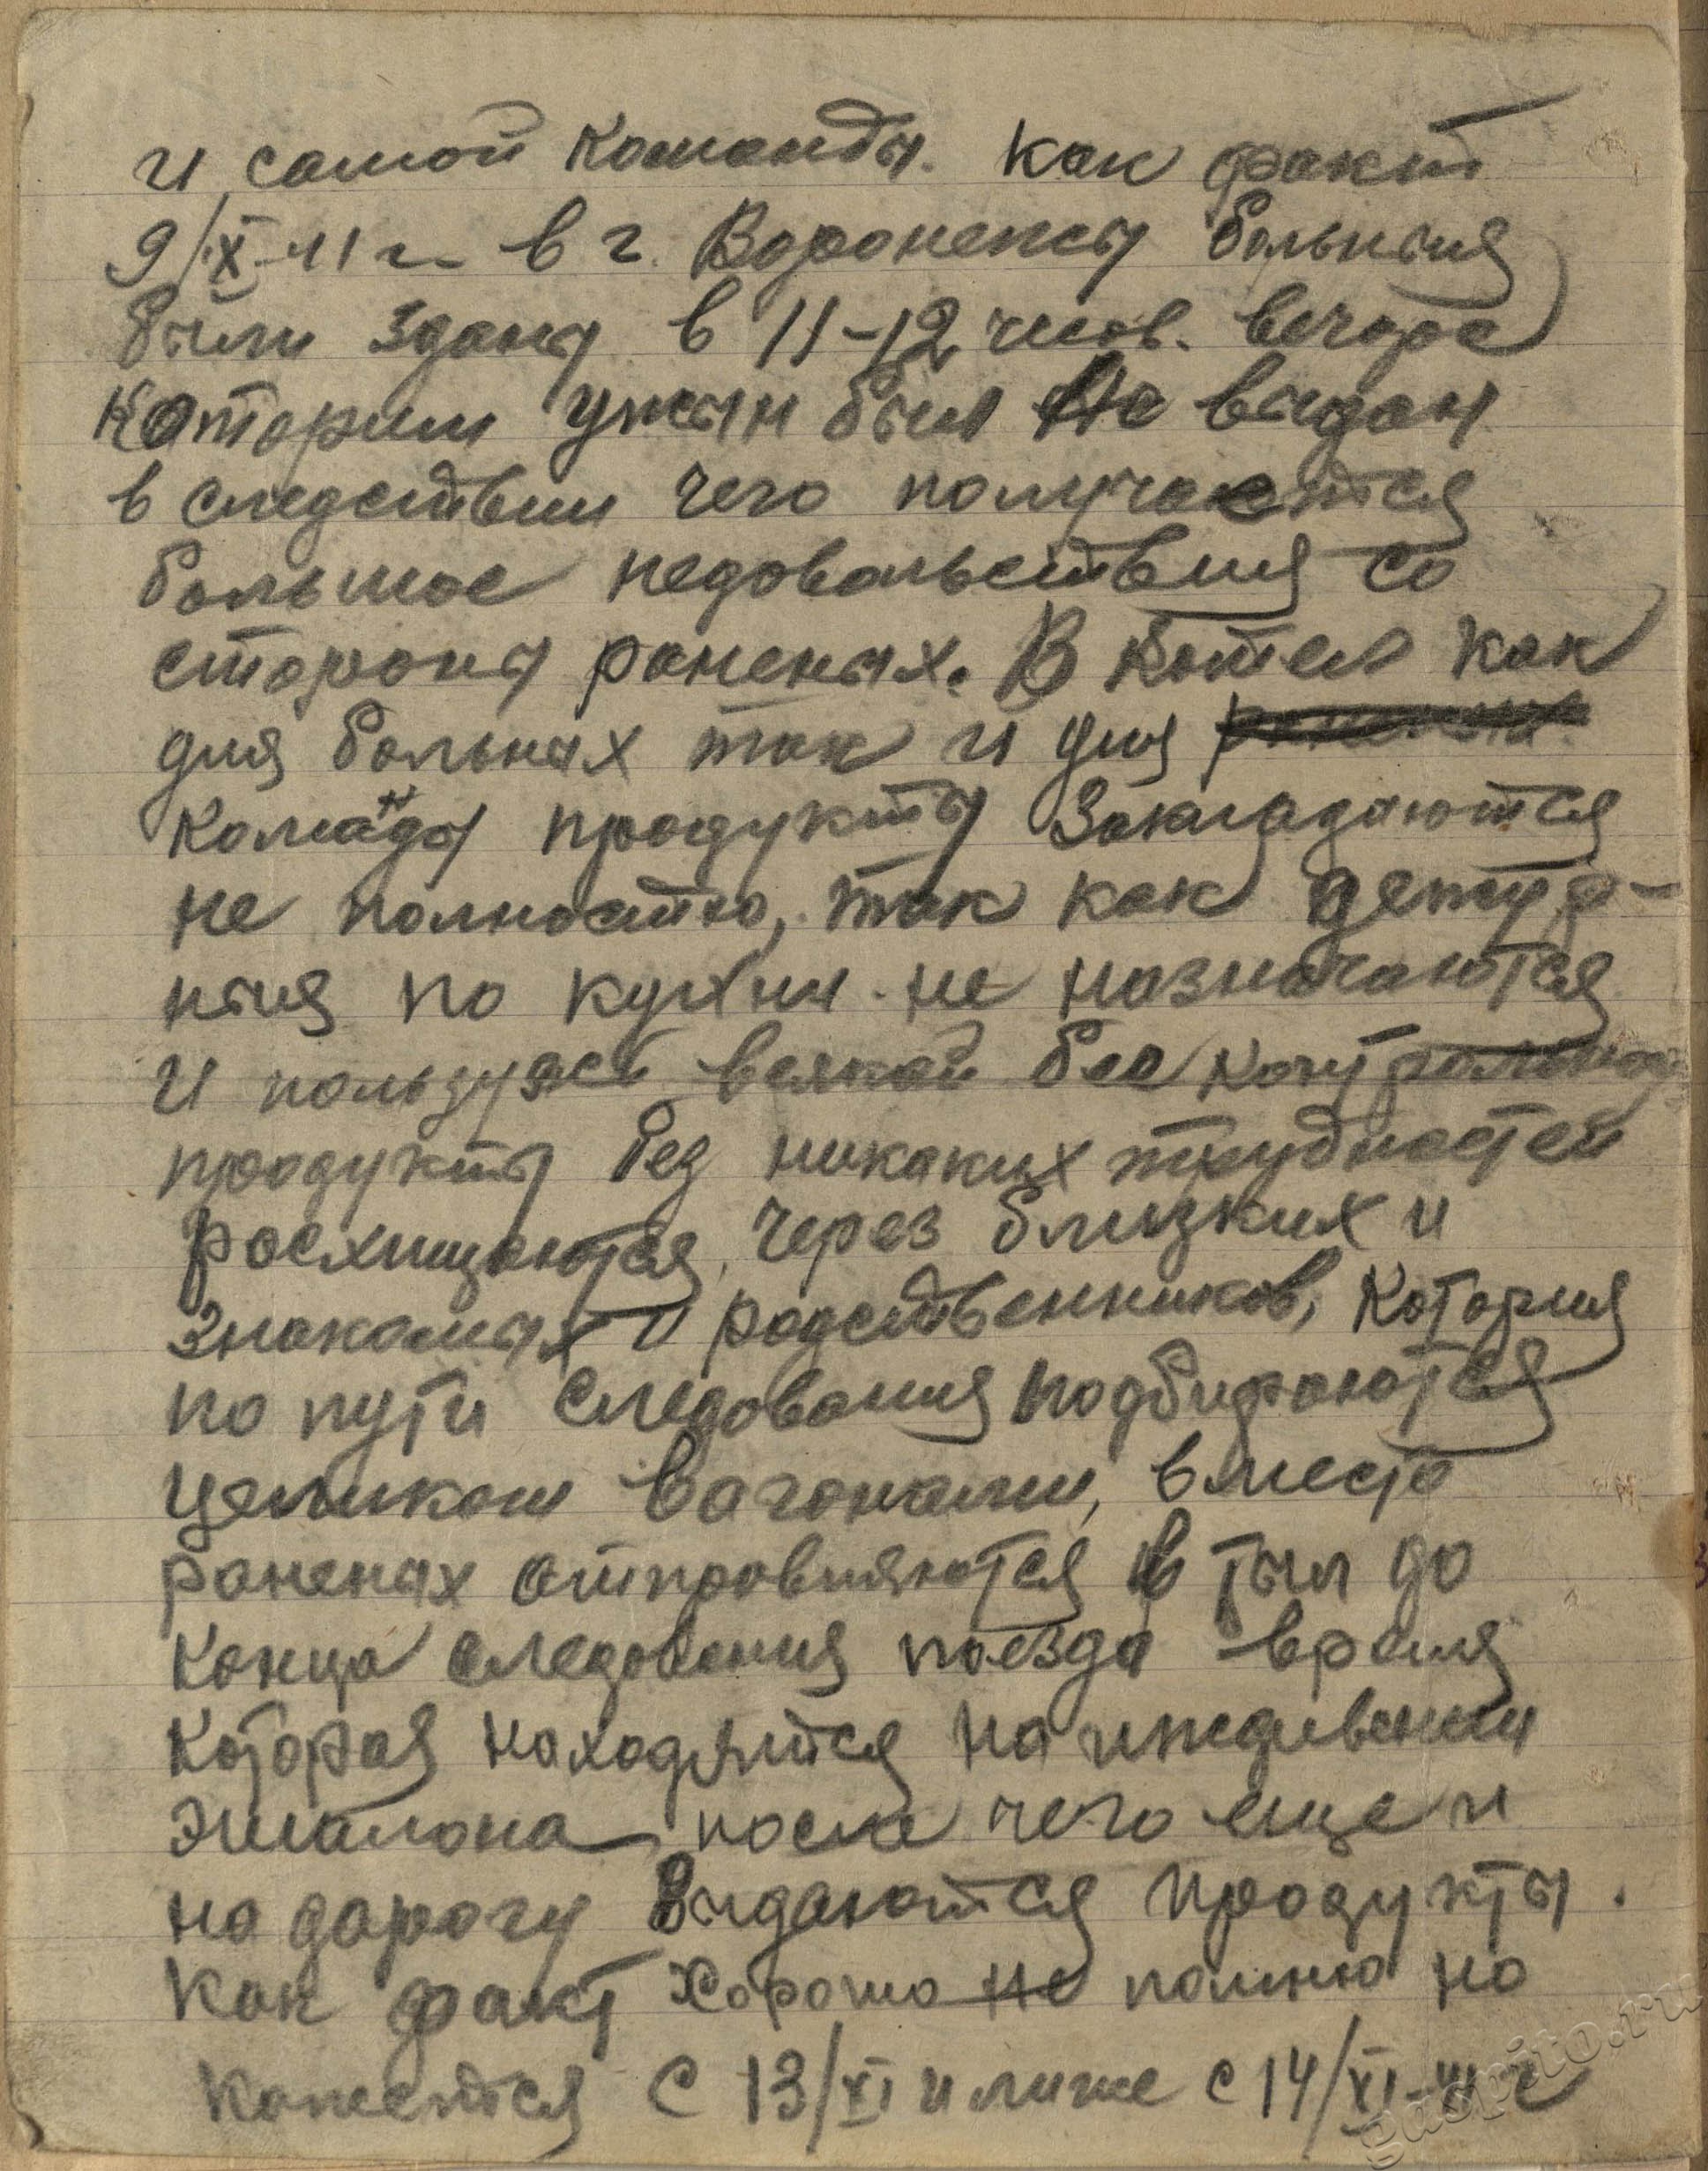 и самой команды. Как факт
9/X-41 г в г. Воронежы больныя
были зданы в 11-12 часов. вечора
каторым ужын был не выдан
в следствии чего получается
большое недовольствия со
стороны раненых. В котел как
для больных так и для раненых
команды продукты закладаются
не полностю, так как дежур-
ныя по кухни не назначаются
и пользуясь всякой бес контрольно
продукты без никаких трудностей
росхищаются, через близких и
знакомых и родственников, которыя
по пути следования подбираются
целиком вагонами, вместо
раненых отправляются в тыл до
конца следования поезда время
которая находятся на иждивении
эшалона после чего еще и
на дорогу выдаются продукты.
Как факт хорошо не помню но
кажется с 13/XI или же с 14/XI-41 г
gaspito.ru